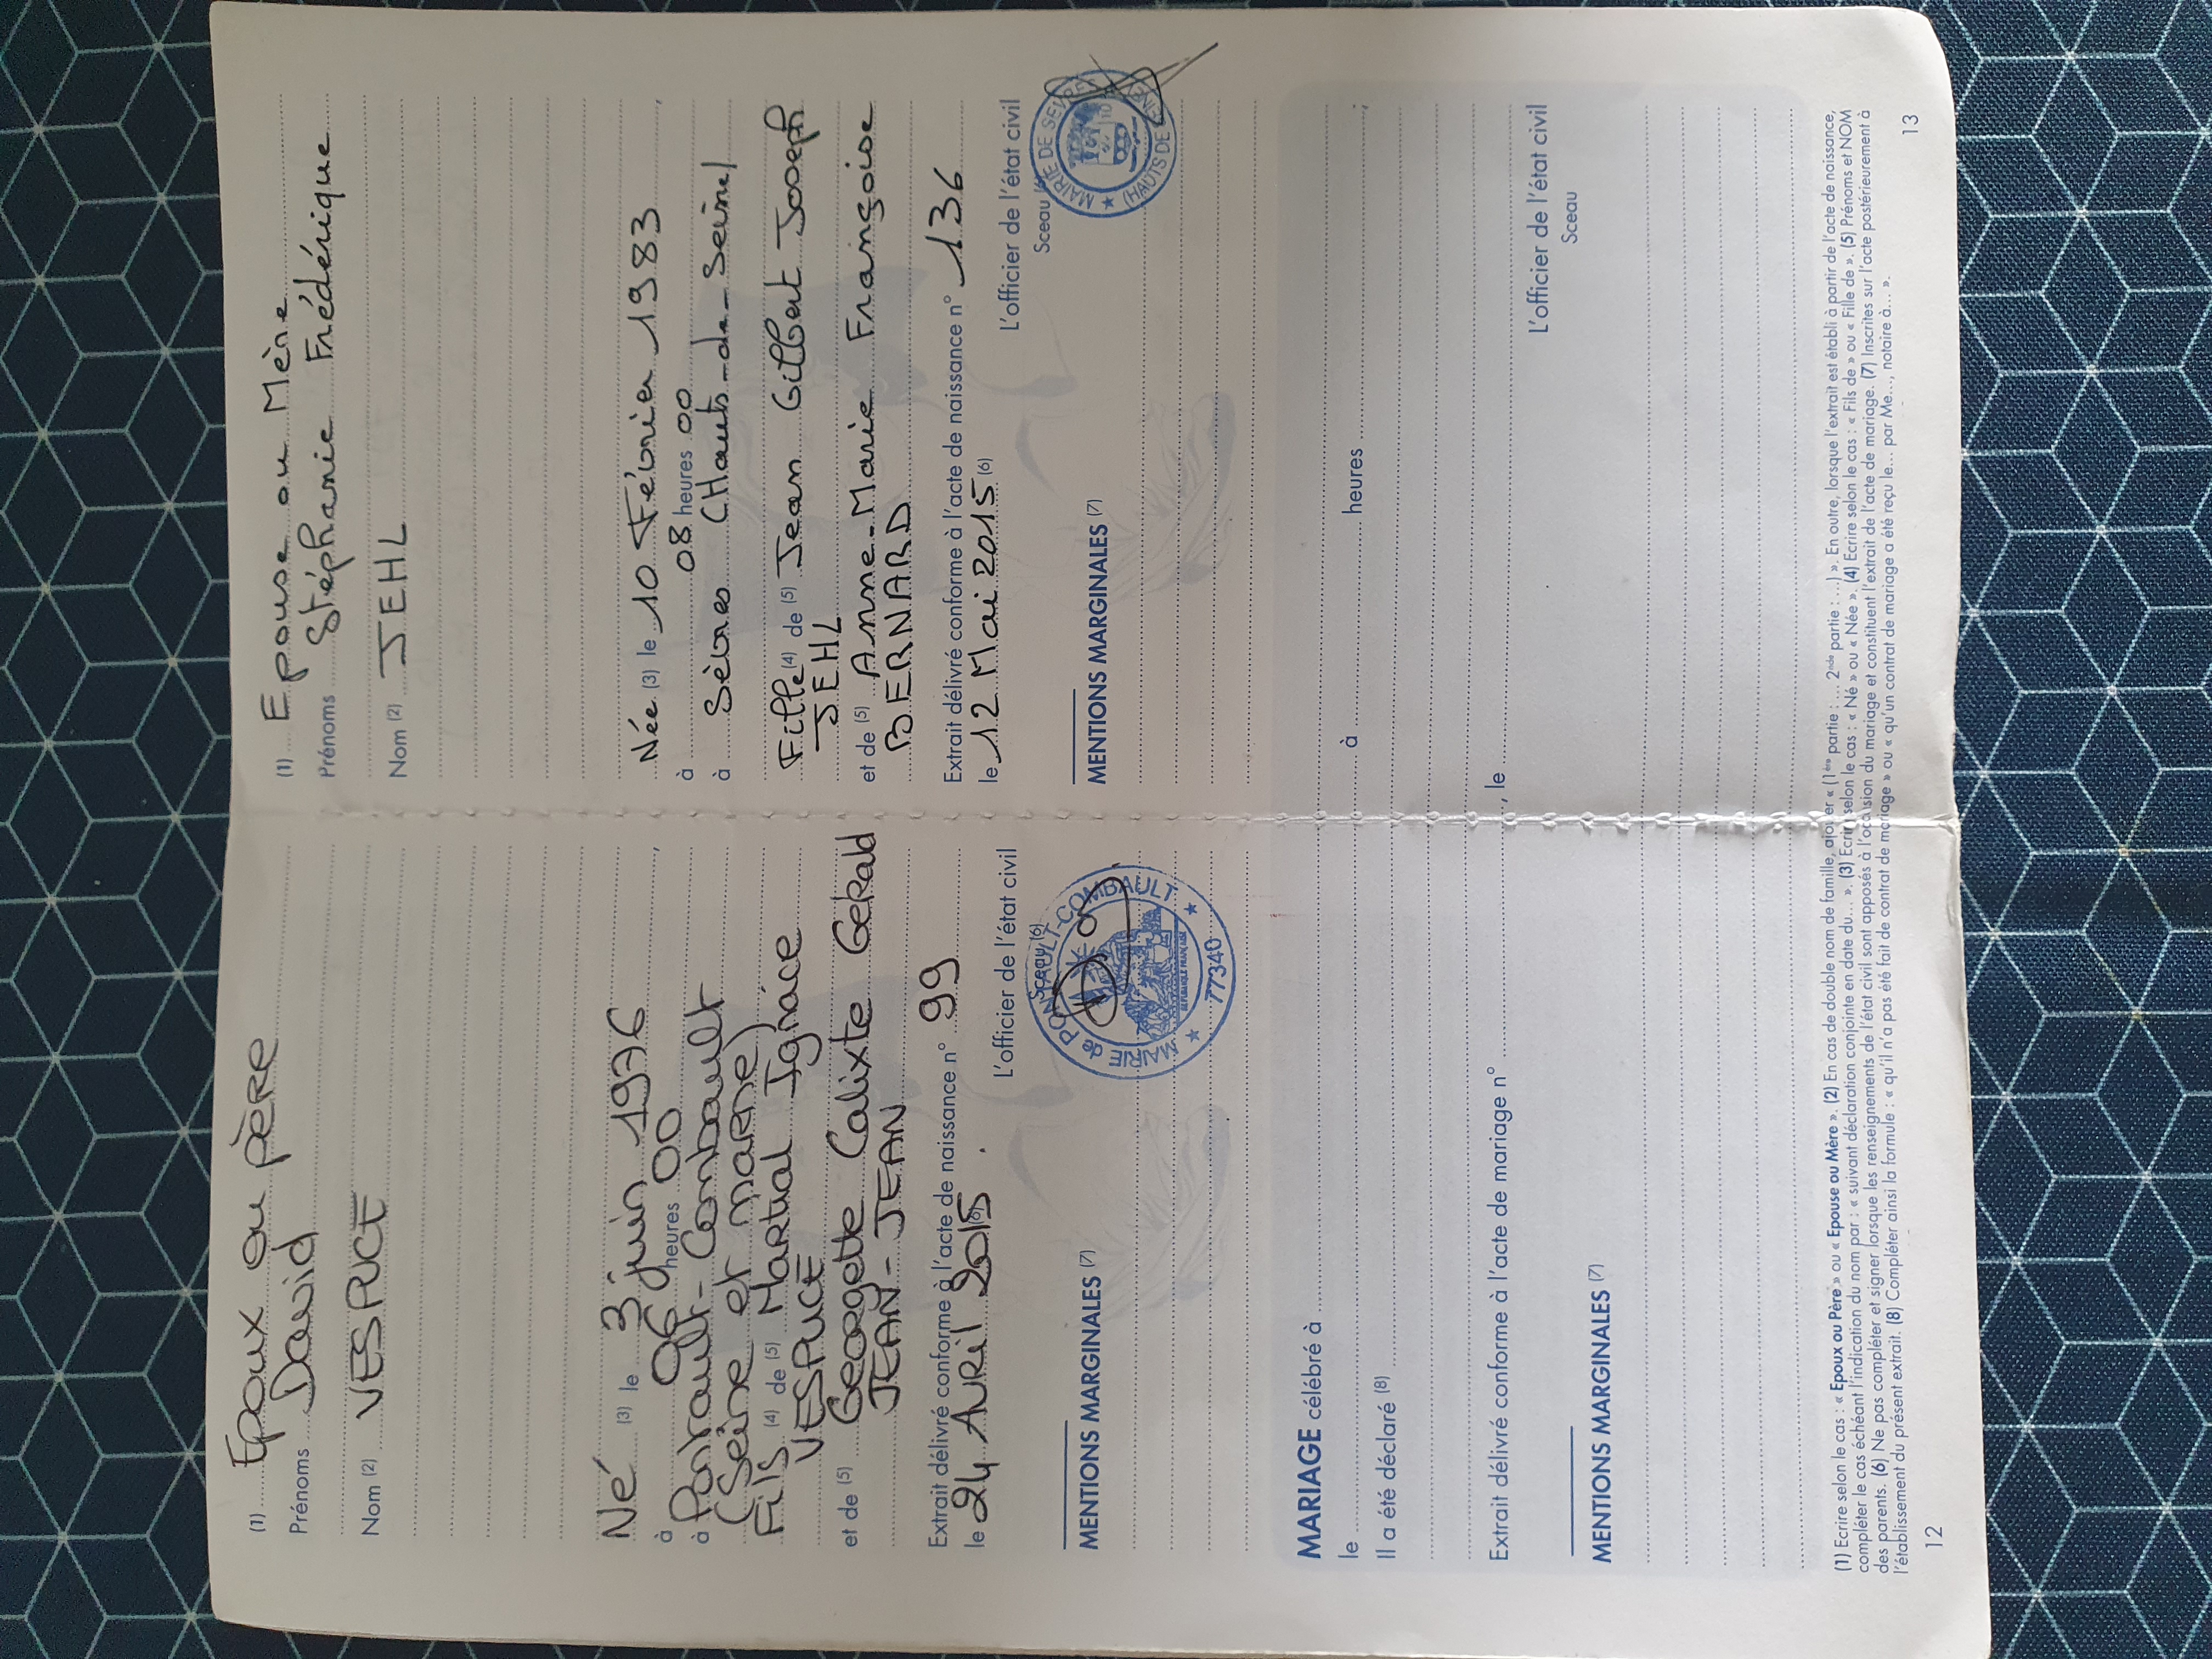 (1) Epoux ou père
Prénoms David
Nom (2) VESPUCE
Né (3) le 3 juin 1976,
à 06 heures 00
à Pontault-Combault
(Seine et marne)
Fils (4) de (5) Martial Ignace
VESPUCE
et de (5) Georgette Calixte Gérald
JEAN-JEAN
Extrait délivré conforme à l'acte de naissance n° 99
le 24 Avril 2015 (6).
L'officier de l'état civil
Sceau (6)
MAIRIE de PONTAULT-COMBAULT
REPUBLIQUE FRANÇAISE
77340
MENTIONS MARGINALES (7)
(1) Epouse ou Mère
Prénoms Stéphanie Frédérique
Nom (2) JEHL
Née (3) le 10 Février 1983,
à 08 heures 00
à Sèvres (Hauts-de-Seine)
Fille (4) de (5) Jean Gilbert Joseph
JEHL
et de (5) Anne-Marie Françoise
BERNARD
Extrait délivré conforme à l'acte de naissance n° 136
le 12 Mai 2015 (6)
L'officier de l'état civil
Sceau
MAIRIE DE SEVRES
(HAUTS DE
MENTIONS MARGINALES (7)
MARIAGE célébré à
le à heures ;
Il a été déclaré (8)
Extrait délivré conforme à l'acte de mariage n° , le
L'officier de l'état civil
Sceau
MENTIONS MARGINALES (7)
(1) Ecrire selon le cas : « Epoux ou Père » ou « Epouse ou Mère ». (2) En cas de double nom de famille, ajouter « (1ère partie : ... 2nde partie : ...) ». En outre, lorsque l'extrait est établi à partir de l'acte de naissance,
compléter le cas échéant l'indication du nom par : « suivant déclaration conjointe en date du... ». (3) Ecrire selon le cas : « Né » ou « Née ». (4) Ecrire selon le cas : « Fils de » ou « Fille de ». (5) Prénoms et NOM
des parents. (6) Ne pas compléter et signer lorsque les renseignements de l'état civil sont apposés à l'occasion du mariage et constituent l'extrait de l'acte de mariage. (7) Inscrites sur l'acte postérieurement à
l'établissement du présent extrait. (8) Compléter ainsi la formule : « qu'il n'a pas été fait de contrat de mariage » ou « qu'un contrat de mariage a été reçu le... par Me..., notaire à... ».
12
13